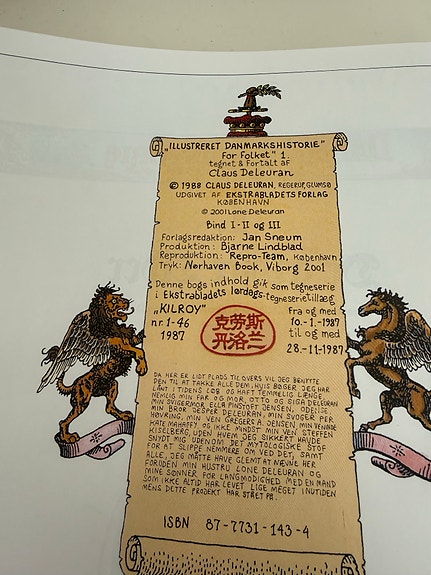 „ILLUSTRERET DANMARKSHISTORIE"
For Folket" 1.
tegnet & fortalt af
Claus Deleuran
© 1988 CLAUS DELEURAN, REGERUP, GLUMSØ
UDGIVET AF EKSTRABLADETS FORLAG
KØBENHAVN
© 2001 Lone Deleuran
Bind I-II og III
Forlagsredaktion: Jan Sneum
Produktion: Bjarne Lindblad
Reproduktion: Repro-Team, København
Tryk: Nørhaven Book, Viborg 2001
Denne bogs indhold gik som tegneserie
i Ekstrabladets lørdags-tegneserietillæg
„KILROY"
nr. 1-46
1987
克劳斯
丹洛兰
Fra og med
10.-1.-1987
til og med
28.-11-1987
DA HER ER LIDT PLADS TILOVERS VIL JEG BENYTTE
DEN TIL AT TAKKE ALLE DEM, HVIS BØGER JEG HAR
LÅNT I TIDENS LØB OG HAFT TEMMELIG LÆNGE
NEMLIG MIN FAR OG MOR, OTTO OG SIGA DELEURAN
MIN SVIGERMOR ELLA PINSTOFT JENSEN, ODENSE,
MIN BROR JESPER DELEURAN, MIN SVOGER PER
HØVRING, MIN VEN GREGERS A. JENSEN, MIN VENINDE
KATE MAHAFFY OG IKKE MINDST MIN VEN STEFFEN
KISELBERG, UDEN HVEM JEG SIKKERT HAVDE
SNYDT MIG UDENOM DET MYTOLOGISKE STOF
FOR AT SLIPPE NEMMERE OM VED DET, SAMT
ALLE, JEG MÅTTE HAVE GLEMT AT NÆVNE HER
FORUDEN MIN HUSTRU LONE DELEURAN OG
MINE SØNNER FOR LANGMODIGHED MED EN MAND
SOM IKKE ALTID HAR LEVET LIGE MEGET I NUTIDEN
MENS DETTE PROJEKT HAR STÅET PÅ.
ISBN 87-7731-143-4